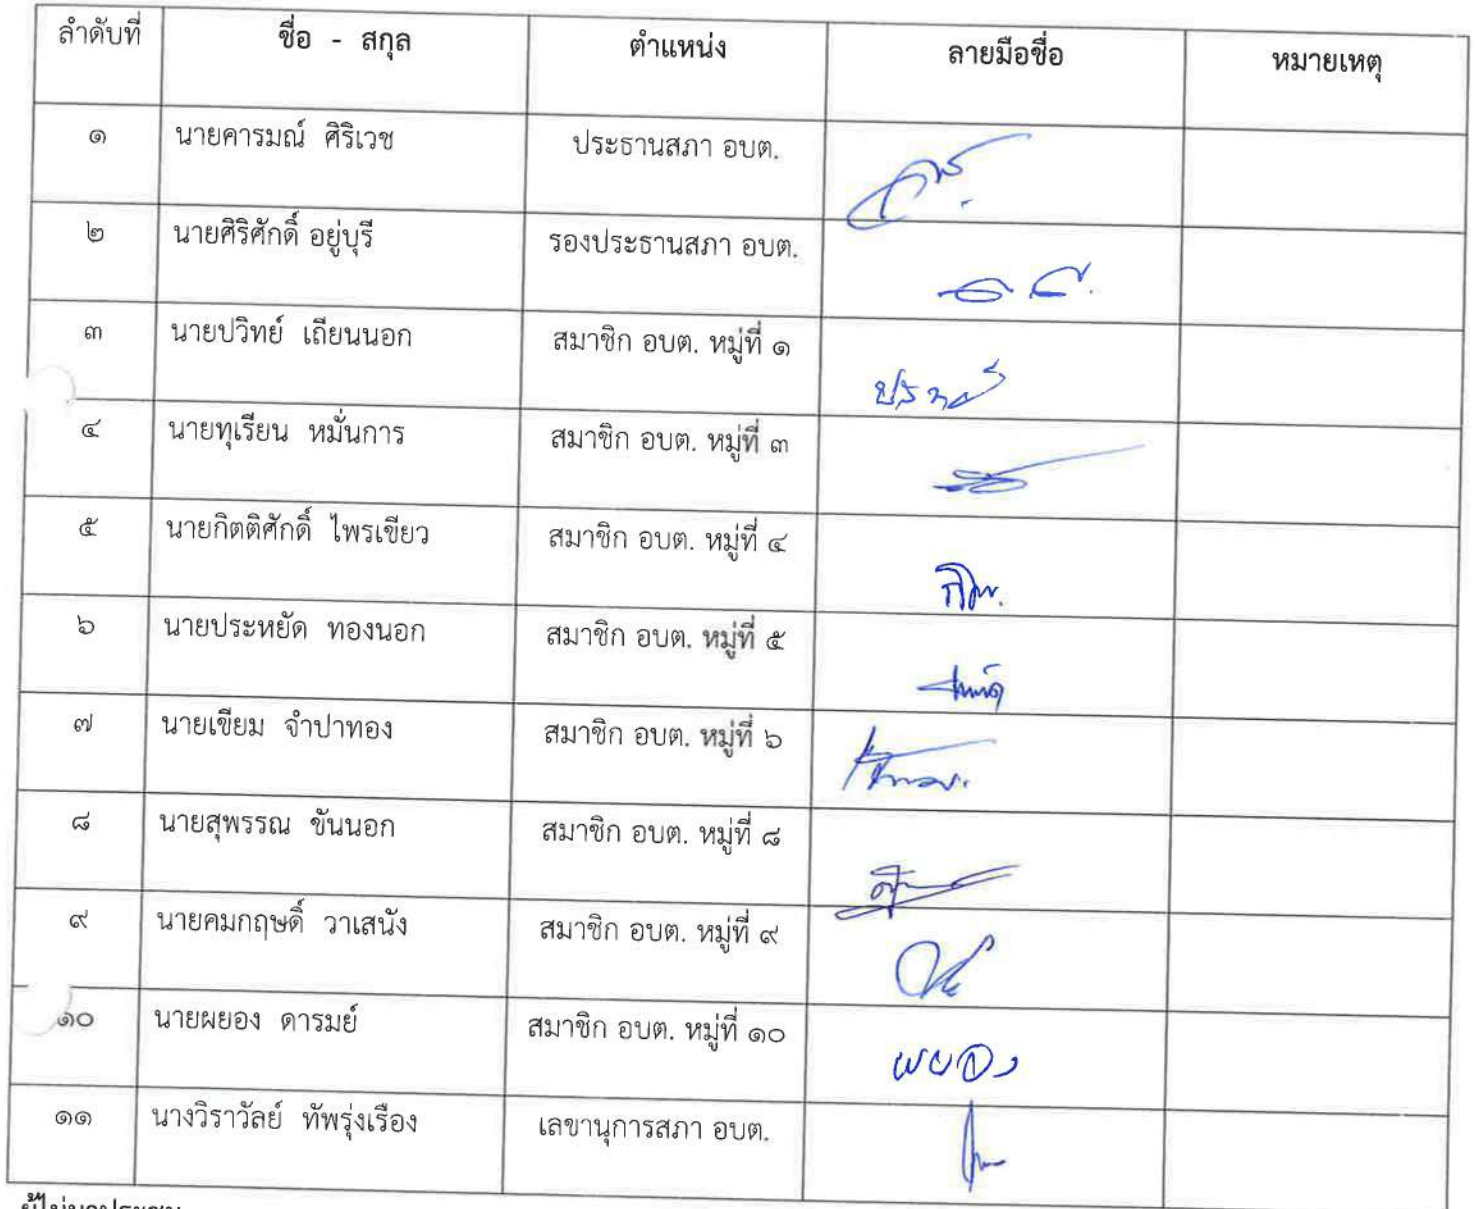 ลำดับที่ ชื่อ - สกุล ตำแหน่ง ลายมือชื่อ หมายเหตุ
๑ นายคารมณ์ ศิริเวช ประธานสภา อบต.
๒ นายศิริศักดิ์ อยู่บุรี รองประธานสภา อบต.
๓ นายปวิทย์ เถียนนอก สมาชิก อบต. หมู่ที่ ๑
๔ นายทุเรียน หมั่นการ สมาชิก อบต. หมู่ที่ ๓
๕ นายกิตติศักดิ์ ไพรเขียว สมาชิก อบต. หมู่ที่ ๔
๖ นายประหยัด ทองนอก สมาชิก อบต. หมู่ที่ ๕
๗ นายเขียม จำปาทอง สมาชิก อบต. หมู่ที่ ๖
๘ นายสุพรรณ ขันนอก สมาชิก อบต. หมู่ที่ ๘
๙ นายคมกฤษดิ์ วาเสนัง สมาชิก อบต. หมู่ที่ ๙
๑๐ นายผยอง ดารมย์ สมาชิก อบต. หมู่ที่ ๑๐ ผยอง
๑๑ นางวิราวัลย์ ทัพรุ่งเรือง เลขานุการสภา อบต.